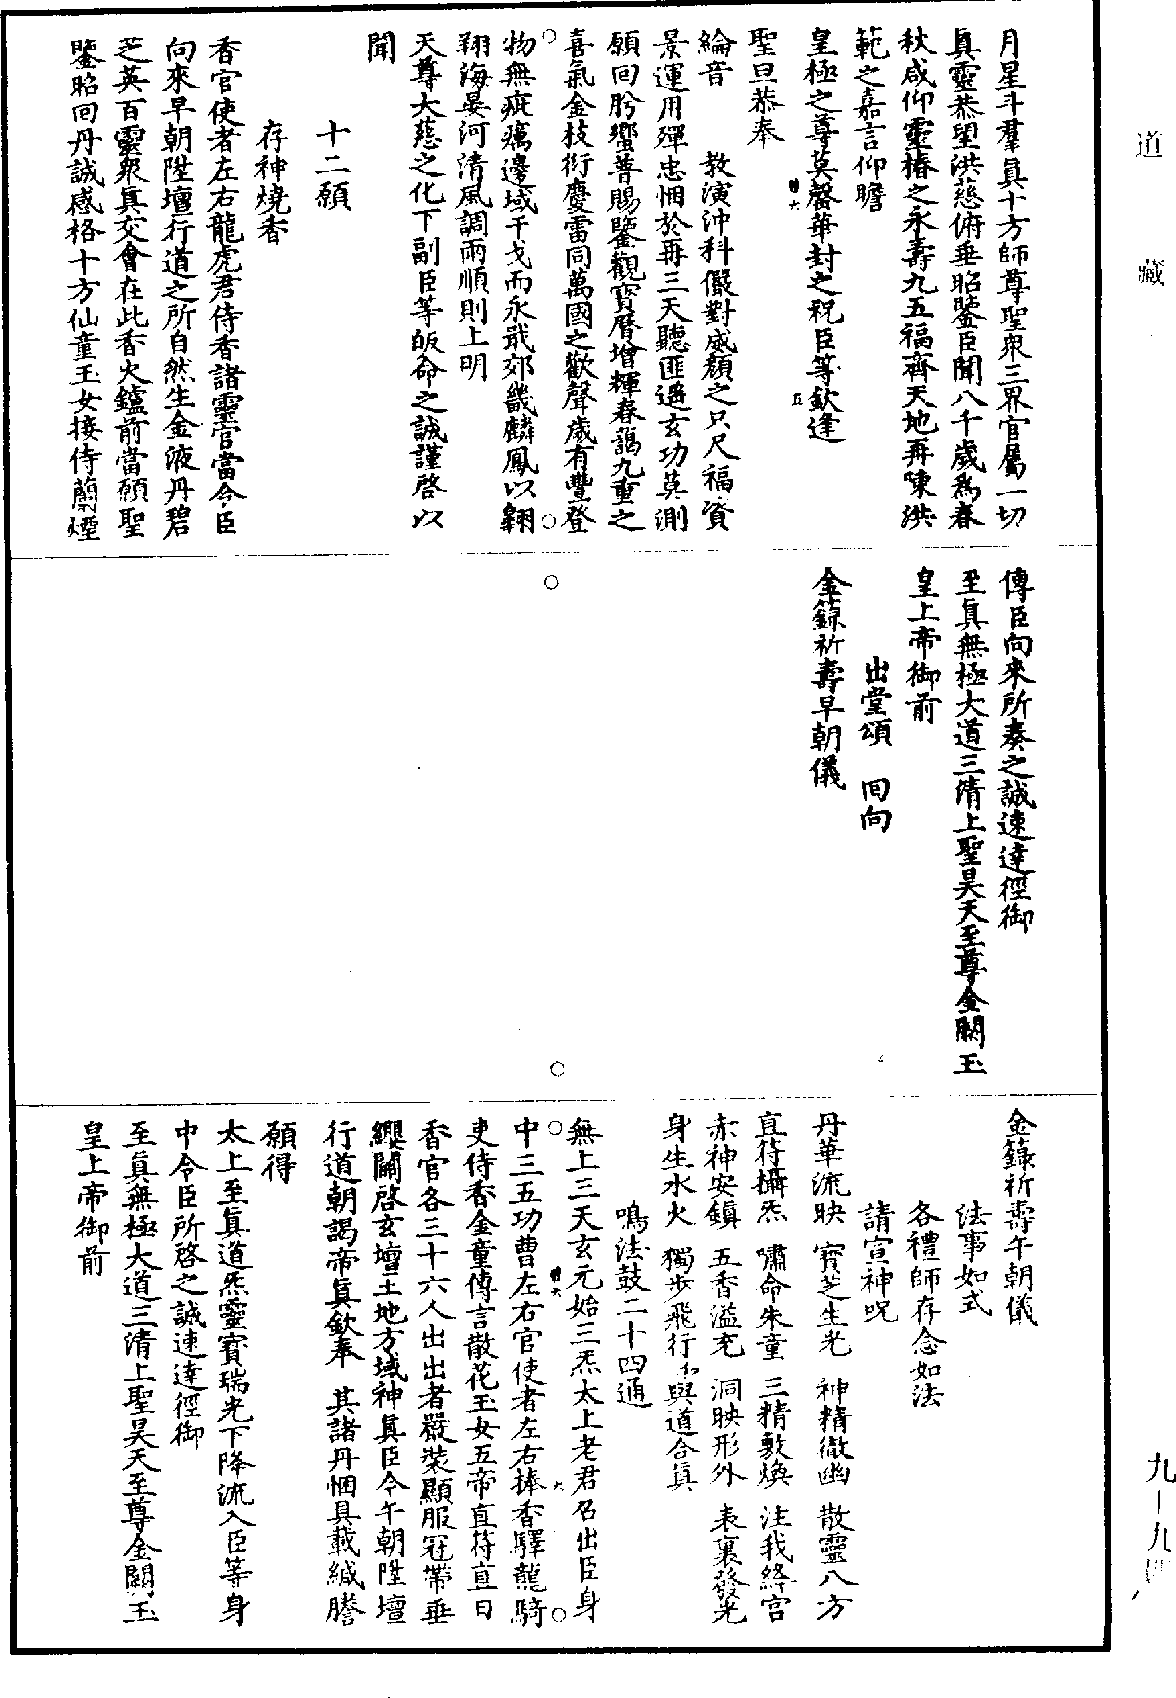 道藏
月星斗羣真十方師尊聖眾三界官屬一切
真靈恭望洪慈俯垂昭鑒臣聞八千歲為春
秋咸仰靈椿之永壽九五福齊天地再陳洪
範之嘉言仰瞻
皇極之尊莫罄華封之祝臣等欽逢
聖旦恭奉
綸音　教演沖科儼對威顏之只尺福資
景運用殫忠悃於再三天聽匪遙玄功莫測
願回肹蠁普賜鑒觀寶曆增輝春藹九重之
喜氣金枝衍慶雷同萬國之歡聲歲有豐登
物無疵癘邊域干戈而永戢郊畿麟鳳以翱
翔海晏河清風調雨順則上明
天尊大慈之化下副臣等皈命之誠謹啓以
聞
十二願
存神燒香
香官使者左右龍虎君侍香諸靈官當令臣
向來早朝陞壇行道之所自然生金液丹碧
芝英百靈眾真交會在此香火鑪前當願聖
鑒昭回丹誠感格十方仙童玉女接侍蘭煙
傳臣向來所奏之誠速達徑御
至真無極大道三清上聖昊天至尊金闕玉
皇上帝御前
出堂頌　回向
金籙祈壽早朝儀
金籙祈壽午朝儀
法事如式
各禮師存念如法
請宣神呪
丹華流映　寶芝生光　神精徹幽　散靈八方
直符攝炁　嘯命朱童　三精敷煥　注我絳宮
赤神安鎮　五香溢充　洞映形外　表裏發光
身生水火　獨步飛行　與道合真
鳴法鼓二十四通
無上三天玄元始三炁太上老君召出臣身
中三五功曹左右官使者左右捧香驛龍騎
吏侍香金童傳言散花玉女五帝直符直日
香官各三十六人出出者嚴裝顯服冠帶垂
纓關啓玄壇土地方域神真臣今午朝陞壇
行道朝謁帝真欽奉　其諸丹悃具載緘謄
願得
太上至真道炁靈寶瑞光下降流入臣等身
中令臣所啓之誠速達徑御
至真無極大道三清上聖昊天至尊金闕玉
皇上帝御前
九—九四